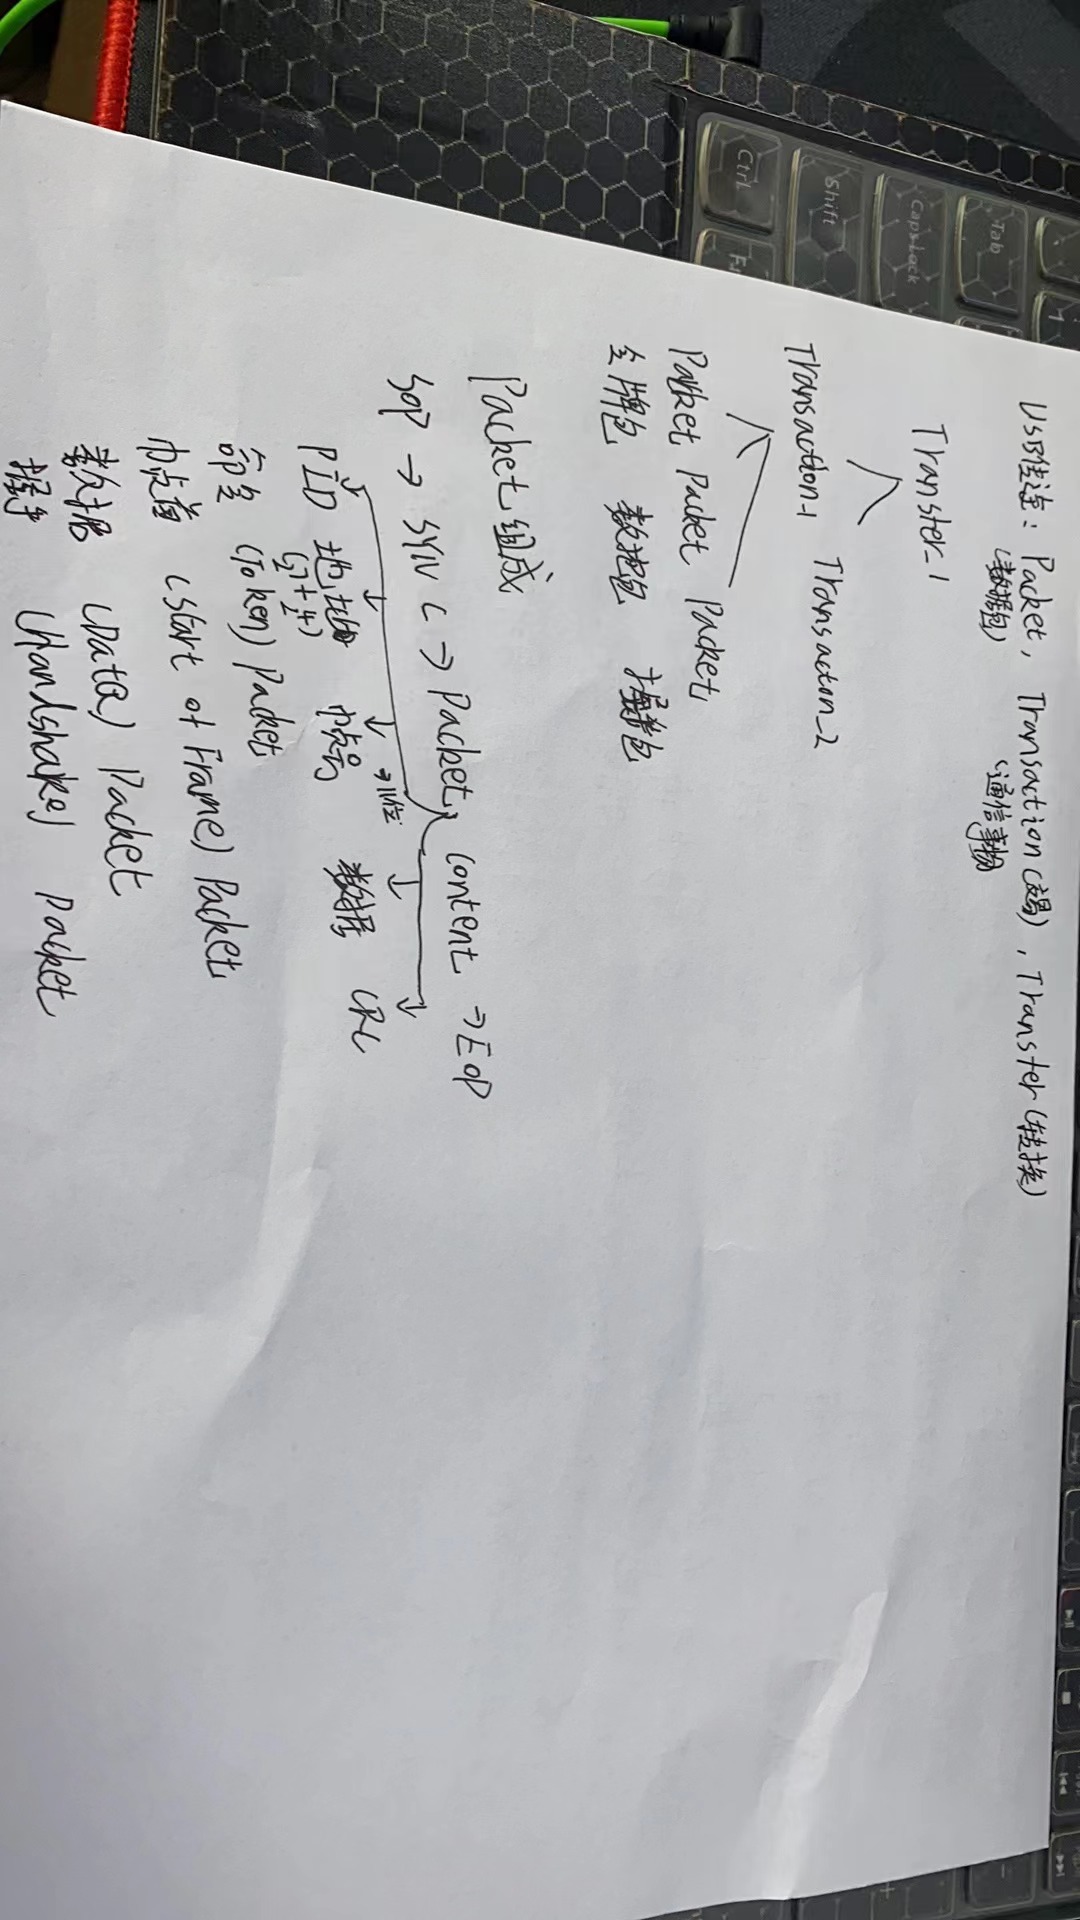 USB传送: Packet, Transaction(交易), Transter(转换)
(数据包) (通信事物)
Transter_1
Transaction_1 Transacton_2
Packet Packet Packet
令牌包 数据包 握手包
Packet组成
SOP → SYNC → Packet content → EOP
→11位
PID 地址 帧号 数据 CRC
(2^7+2^4)
命令 (Token) Packet
帧首 (Start of Frame) Packet
数据 (Data) Packet
握手 (Handshake) Packet
Tab
CapsLock
Shift
Ctrl